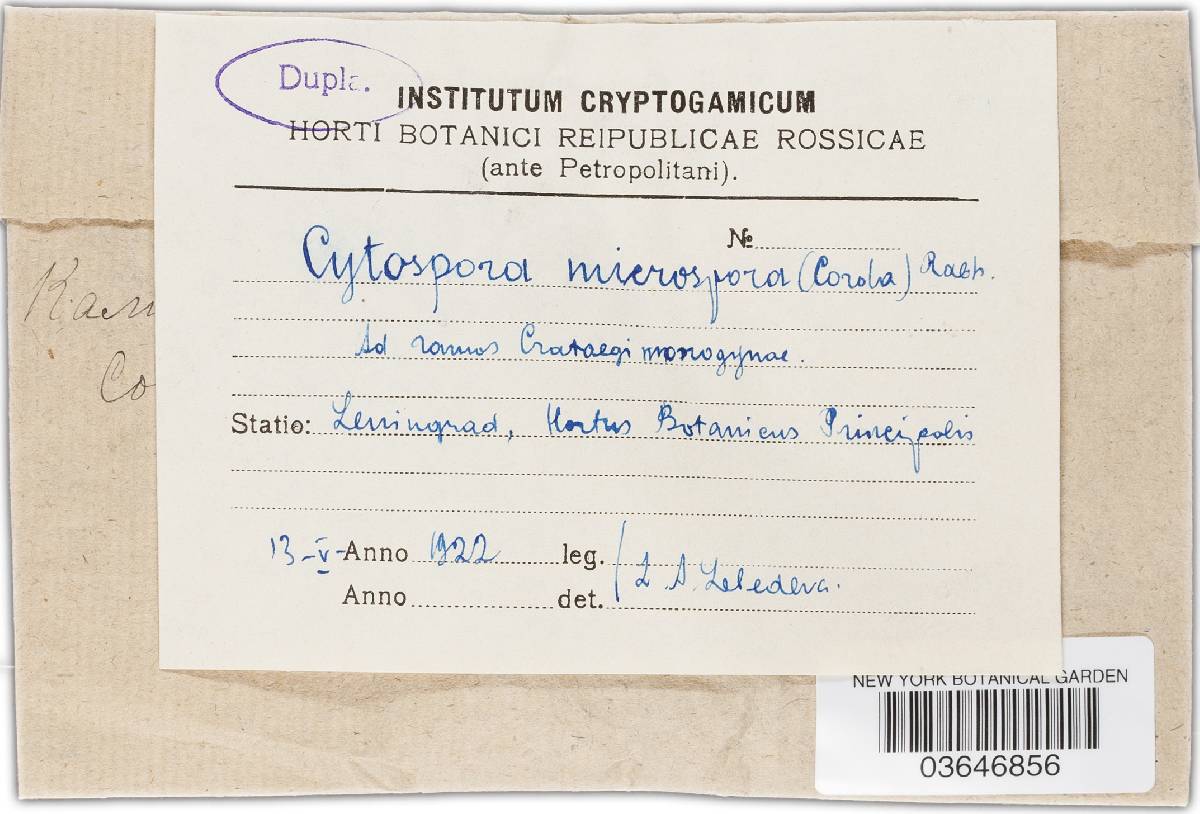 Dupla.
INSTITUTUM CRYPTOGAMICUM
HORTI BOTANICI REIPUBLICAE ROSSICAE
(ante Petropolitani).
№
Cytospora microspora (Corda) Rabh.
Ad ramos Crataegi monogynae.
Statio: Leningrad, Hortus Botanicus Principalis
13-V-Anno 1922 leg.
Anno det. L A. Lebedeva.
Co
NEW YORK BOTANICAL GARDEN
03646856